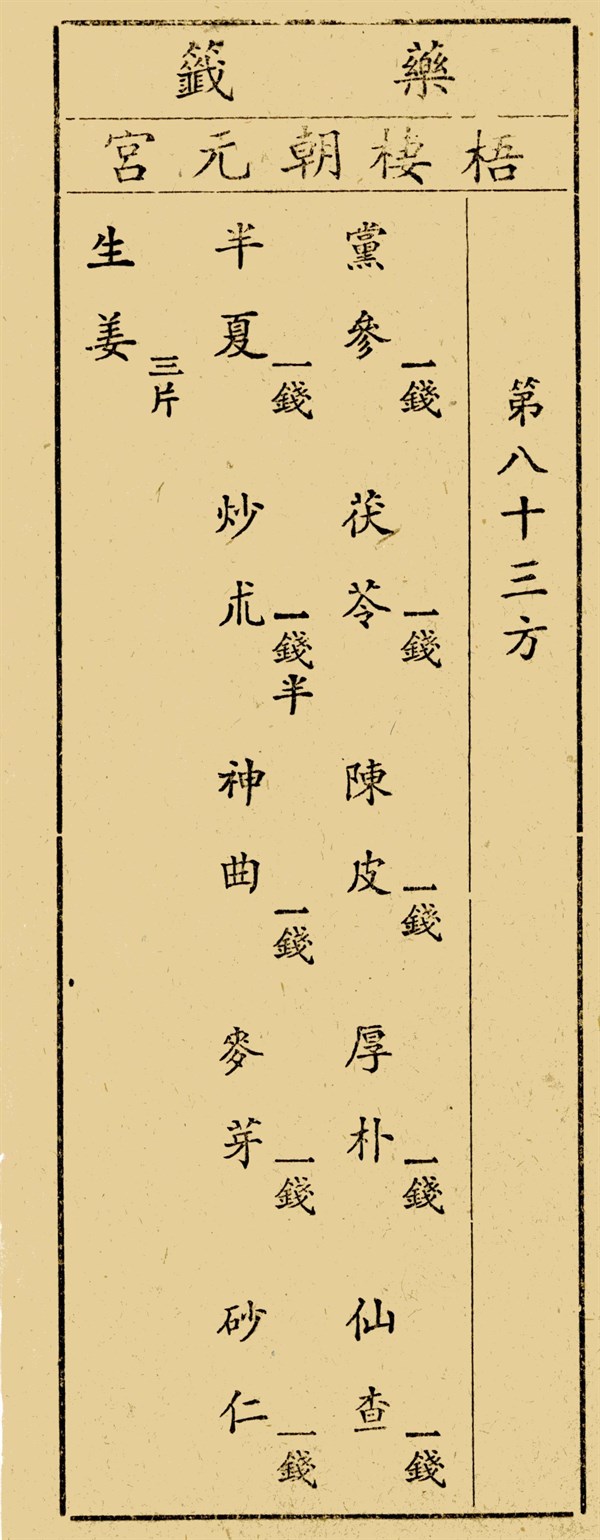 藥籤
梧棲朝元宮
第八十三方
黨參一錢 茯苓一錢 陳皮一錢 厚朴一錢 仙查一錢
半夏一錢 炒朮一錢半 神曲一錢 麥芽一錢 砂仁一錢
生姜三片